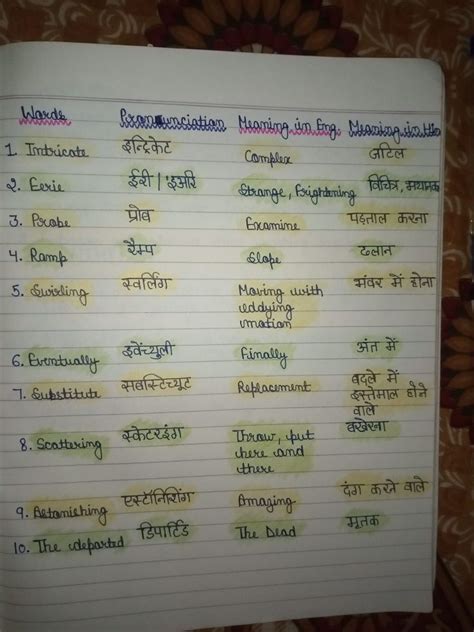 Words Pronunciation Meaning in Eng. Meaning in Hin
1. Intricate इन्ट्रिकेट Complex जटिल
2. Eerie ईरी / इअरि Strange, Frightening विचित्र, भयानक
3. Probe प्रोव Examine पड़ताल करना
4. Ramp रैम्प Slope ढलान
5. Swirling स्वर्लिंग Moving with भंवर में होना
eddying
motion
6. Eventually इवेंच्युली Finally अंत में
7. Substitute सबस्टिच्यूट Replacement बदले में
इस्तेमाल होने
वाले
8. Scattering स्केटरइंग Throw, put बखेरना
here and
there
9. Astonishing एस्टॉनिशिंग Amazing दंग करने वाले
10. The departed डिपार्टिड The Dead मृतक